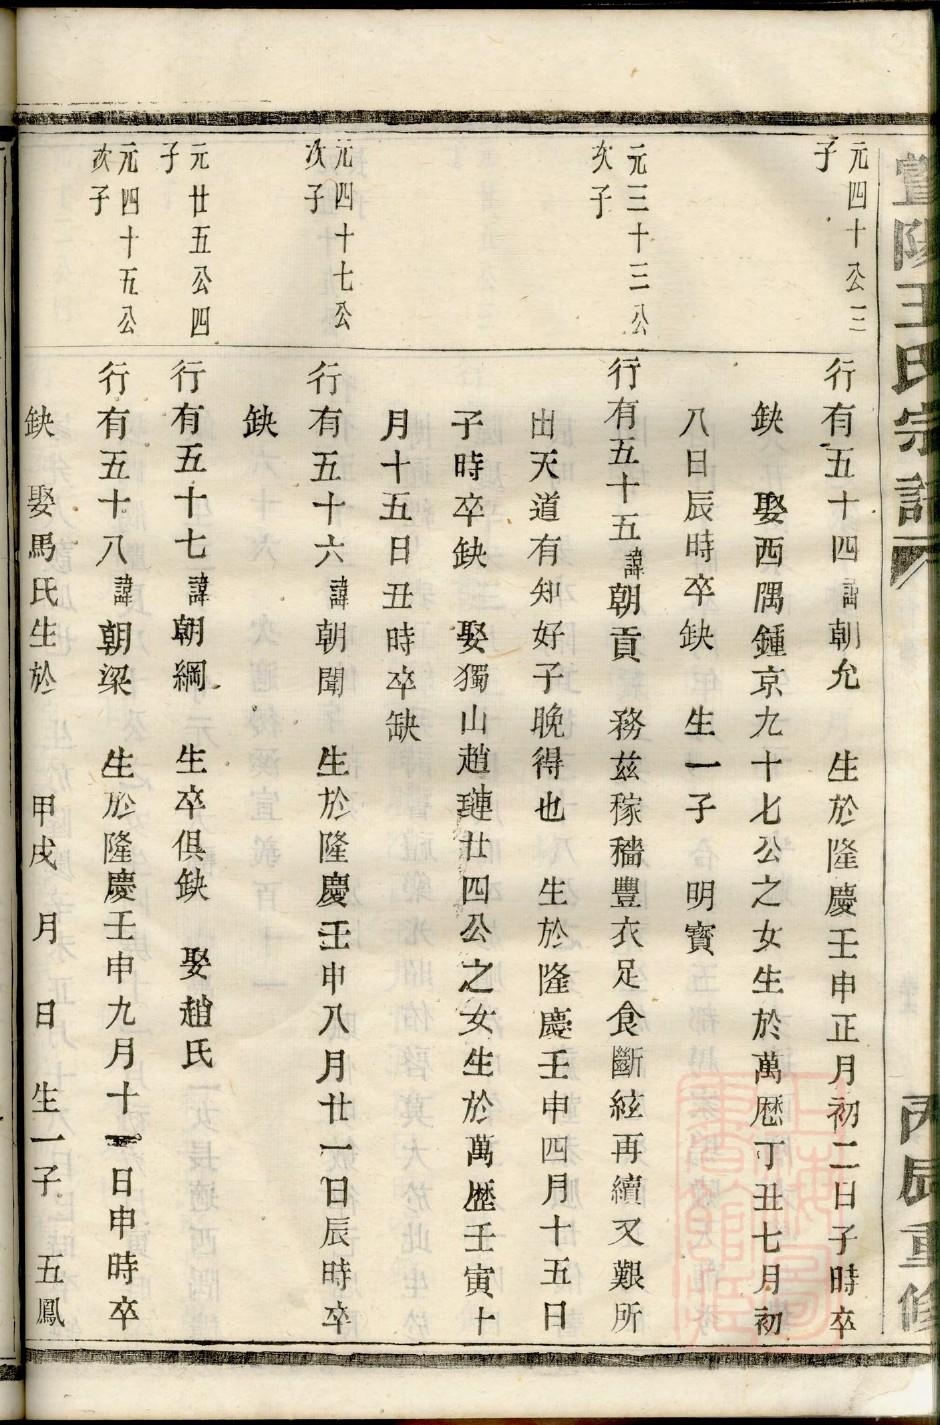 暨陽王氏宗譜
丙辰重修
元四十公三
子
行有五十四諱朝允 生於隆慶壬申正月初二日子時卒
缺 娶西隅鍾京九十七公之女生於萬厯丁丑七月初
八日辰時卒缺 生一子 明寳
元三十三公
次子
行有五十五諱朝貢 務兹稼穡豐衣足食斷絃再續又艱所
出天道有知好子晚得也 生於隆慶壬申四月十五日
子時卒缺 娶獨山趙璉廿四公之女生於萬歷壬寅十
月十五日丑時卒缺
元四十七公
次子
行有五十六諱朝聞 生於隆慶壬申八月廿一日辰時卒
缺
元廿五公四
子
行有五十七諱朝綱 生卒俱缺 娶趙氏
元四十五公
次子
行有五十八諱朝梁 生於隆慶壬申九月十一日申時卒
缺 娶馬氏生於 甲戌 月 日 生一子 五鳳